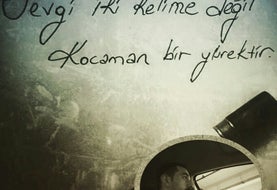 Sevgi iki kelime değil
Kocaman bir yürektir.